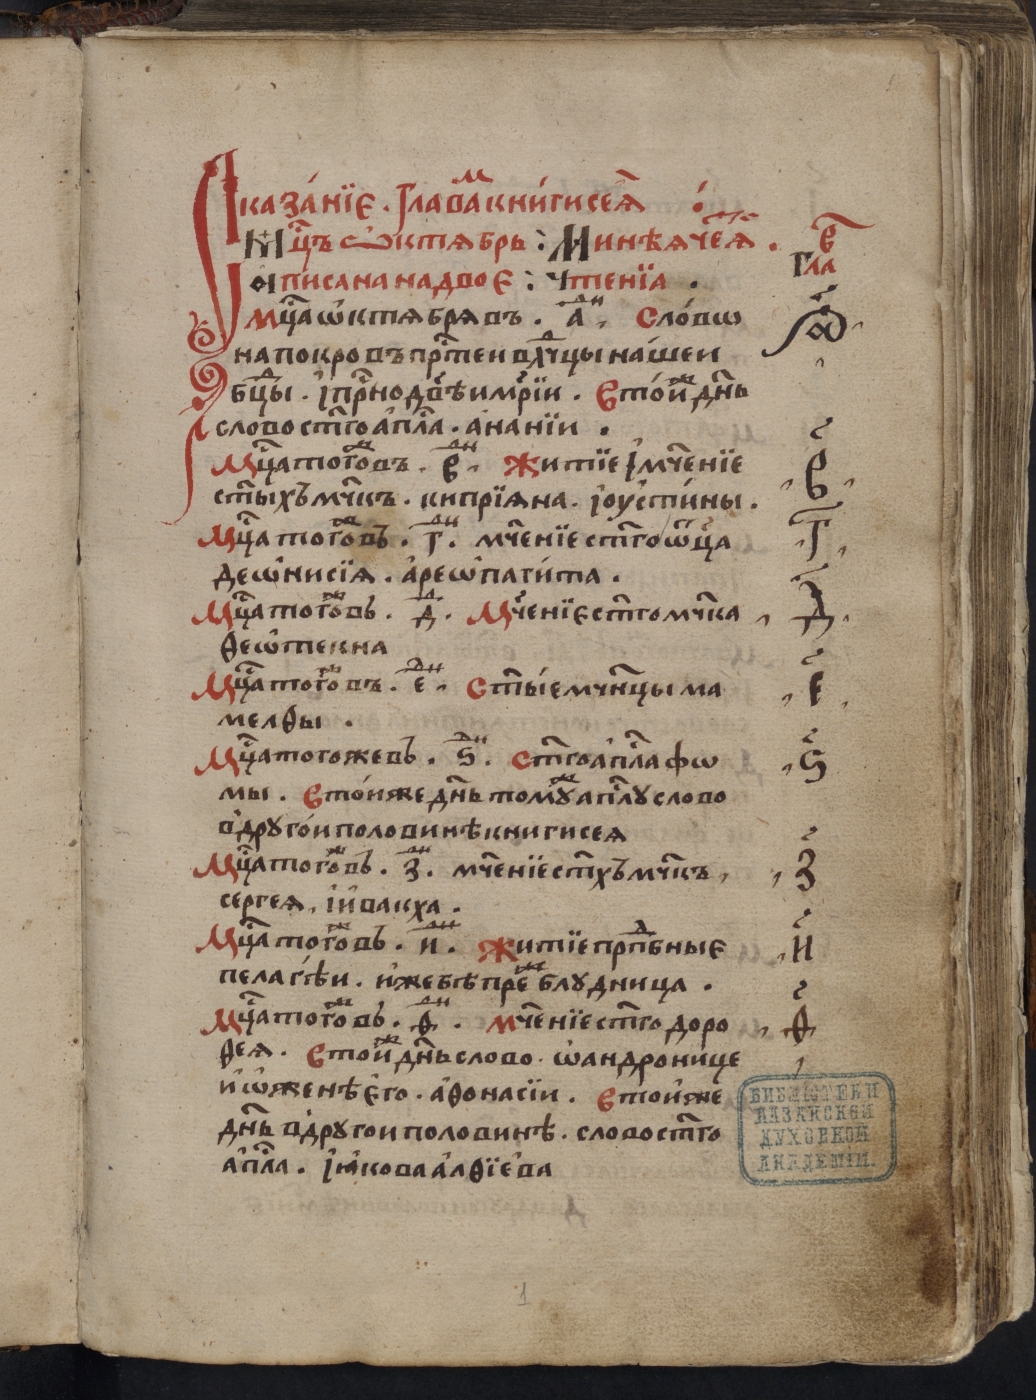 Сказа́нїє . глава́м кни́ги сея̀ :
Мц҃ъ ѡктѧбрь : Минѣѧ че́тїѧ .
ѿписана на двоє : чтенїа .
гла
Мц҃а ѡктѧбрѧ въ . а҃ . дн Сло́во ѡ а҃
на покровъ прт҃еи влд҃чцы на́шеи
бц҃ы . і прн҃о дв҃ѣи мр҃їи . Ето́йж дн҃ь
слово ст҃го ап҃ла . ана́нїи .
Мц҃а тогож въ . в҃ . дн Житїе і мч҃енїе в҃
ст҃ыхъ мч҃къ . кипрїѧна . і оусти́ны .
Мц҃а тогож въ . г҃ . дн мч҃енїе ст҃го ѡц҃а г҃
деѡ́нисїѧ . а́реѡпаги́та .
Мц҃а тогож въ . д҃ . Мч҃енїе ст҃го мч҃ка д҃
ѳеѡ́текна
Мц҃а тогож въ . е҃ . дн Ст҃ы́е мч҃нцы ма е҃
мелѳы .
Мц҃а тогоже въ . ѕ҃ . дн Ст҃го ап҃ла фѡ ѕ҃
мы . Ето́иже дн҃ь томуж ап҃лу слово
в друго́и половинѣ книги сеѧ
Мц҃а тогож въ . з҃ . дн мч҃енїе ст҃хъ мч҃къ , з҃
сергеѧ , і вакха .
Мц҃а тогож въ . и҃ . дн Житїе прп҃бныє и҃
пелагѣи . иже бѣ преж блудница .
Мц҃а тогож въ . ѳ҃ . дн Мч҃енїе ст҃го доро ѳ҃
ѳеѧ . Етойж дн҃ь слово . ѡ андрони́це
и ѡ женѣ єго . аѳонасїи . Етои́же
дн҃ь в другои половинѣ . слово ст҃го
ап҃ла . іѧкова алѳїе́ва
БИБЛІОТЕКИ
КАЗАНСКОЙ
ДУХОВНОЙ
АКАДЕМІИ.
1